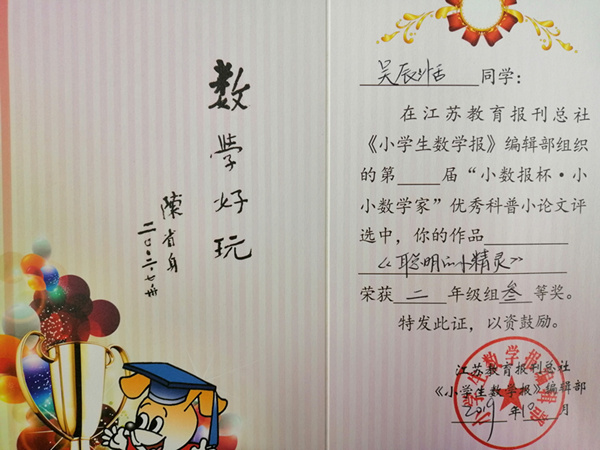 数学好玩
陈省身
吴辰恬 同学：
在江苏教育报刊总社
《小学生数学报》编辑部组织
的第____届“小数报杯·小
小数学家”优秀科普小论文评
选中，你的作品
《聪明的小精灵》
荣获 二 年级组 叁 等奖。
特发此证，以资鼓励。
江苏教育报刊总社
《小学生数学报》编辑部
2019 年 12 月